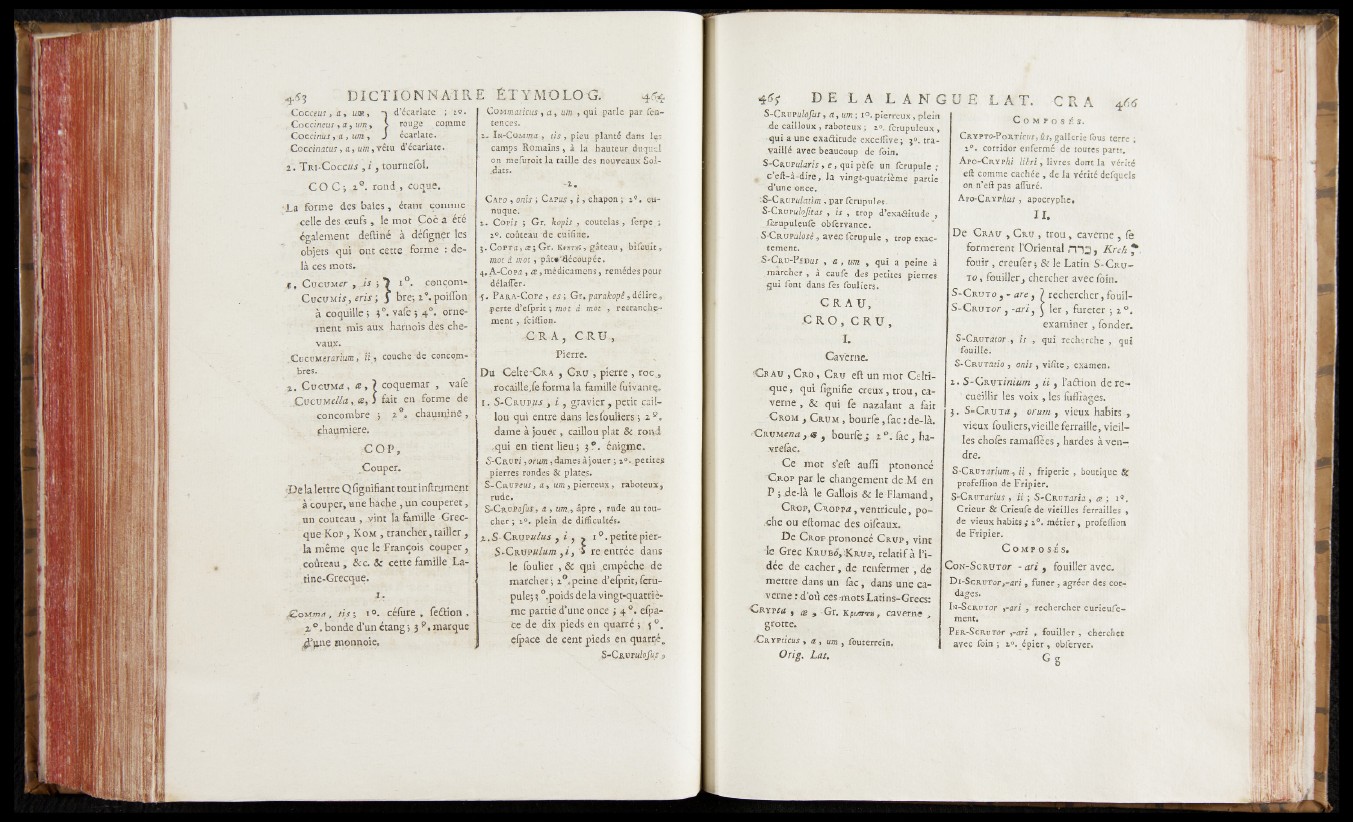 463 DICTIONNAIRE ÉTYMOLOG. 464
Cocceus, a, um, } d'écarlate ; 2°.
Coccineus, a, um, } rouge comme
Coccinus, a, um, } écarlate.
Coccinatus, a, um, vêtu d'écarlate.
2. TRI-Coccus, i, tournesol.
COC ; 2°. rond, coque.
La forme des bales, étant comme
celle des œufs, le mot Coc a été
également destiné à désigner les
objets qui ont cette forme : de-
là ces mots.
1. CUCUMer, is ; } 1°. concom-
CUCUMis, eris ; } bre; 2°. poisson
à coquille ; 3°. vase ; 4°. orne-
ment mis aux harnois des che-
vaux.
CUCUMerarium, ii, couche de concom-
bres.
2. CUCUMa, æ, } coquemar, vase
CUCUMella, æ, } fait en forme de
concombre ; 2°. chaumine,
chaumiere.
COP,
Couper.
De la lettre Q signifiant tout instrument
à couper, une hache, un couperet,
un couteau, vint la famille Grec-
que KOP, KOM, trancher, tailler,
la même que le François couper,
coûteau, &c. & cette famille La-
tine-Grecque.
1.
COMMa, tis ; 1°. césure, section.
2°. bonde d'un étang ; 3°. marque
d'une monnoie.
COMMaticus, a, um, qui parle par sen-
tences.
2. IN-COMMa, tis, pieu planté dans les
camps Romains, à la hauteur duquel
on mesuroit la taille des nouveaux Sol-
dats.
2.
CAPO, onis ; CAPUS, i, chapon ; 2°. eu-
nuque.
2. COPIS ; Gr. kopis, coutelas, serpe ;
2°. coûteau de cuisine.
3. COPTA, æ ; Gr. Κοπτη, gâteau, biscuit,
mot à mot, pâte découpée.
4. A-COPA, æ, médicamens, remèdes pour
délasser.
5. PARA-COPE, es ; Gr. parakopé, délire,
perte d'esprit ; mot à mot, retranche-
ment, scission.
CRA, CRU,
Pierre.
Du Celte CRA, CRU, pierre, roc,
rocaille, se forma la famille suivante.
1. S-CRUPUS, i, gravier, petit cail-
lou qui entre dans les souliers ; 2°.
dame à jouer, caillou plat & rond
qui en tient lieu ; 3°. énigme.
S-CRUPI, orum, dames à jouer ; 2°. petites
pierres rondes & plates.
S-CRUPeus, a, um, pierreux, raboteux,
rude.
S-CRUPOsus, a, um, âpre, rude au tou-
cher ; 2°. plein de difficultés.
2. S-CRUPulus, i, } 1°. petite pier-
S-CRUPulum, i, } re entrée dans
le soulier, & qui empêche de
marcher ; 2°. peine d'esprit, scru-
pule ; 3°. poids de la vingt-quatriè-
me partie d'une once ; 4°. espa-
ce de dix pieds en quarré ; 5°.
espace de cent pieds en quarré.
S-CRUPulosus,
465 DE LA LANGUE LAT. CRA 466
S-CRUPulosus, a, um ; 1°. pierreux, plein
de cailloux, raboteux ; 2°. scrupuleux,
qui a une exactitude excessive ; 3°. tra-
vaillé avec beaucoup de soin.
S-CRUPularis, e, qui pèse un scrupule ;
c'est-à-dire, la vingt-quatrième partie
d'une once.
S-CRUPulatim, par scrupules
S-CRUPulositas, is, trop d'exactitude,
scrupuleuse observance.
S-CRUPulosè, avec scrupule, trop exac-
tement.
S-CRU-PEDUS, a, um, qui a peine à
marcher, à cause des petites pierres
qui sont dans ses souliers.
CRAU,
CRO, CRU,
I.
Caverne.
CRAU, CRO, CRU est un mot Celti-
que, qui signifie creux, trou, ca-
verne, & qui se nazalant a fait
CROM, CRUM, bourse, sac : de-là.
CRUMena, æ, bourse ; 2°. sac, ha-
vresac.
Ce mot s'est aussi prononcé
CROP par le changement de M en
P ; de-là le Gallois & le Flamand,
CROP, CROPPA, ventricule, po-
che ou estomac des oiseaux.
De CROP prononcé CRUP, vint
le Grec KRUBÓ, KRUP, relatif à l'i-
dée de cacher, de renfermer, de
mettre dans un sac, dans une ca-
verne : d'où ces mots Latins-Grecs:
CRYPta, æ, Gr. Κρυπτη, caverne,
grotte.
CRYPticus, a, um, souterrein.
Orig. Lat.
COMPOSÉS.
CRYPTO-PORTicus, ûs, gallerie sous terre ;
2°. corridor enfermé de toutes parts.
APO-CRYPhi libri, livres dont la vérité
est comme cachée, de la vérité desquels
on n'est pas assuré.
APO-CRYPhus, apocryphe.
II.
De CRAU, CRU, trou, caverne, se
formerent l'Oriental כרה, Kreh,
fouir, creuser ; & le Latin S-CRU-
TO, fouiller, chercher avec soin.
S-CRUTO, -are, } rechercher, fouil-
S-CRUTOR, -ari, } ler, fureter ; 2°.
examiner, sonder.
S-CRUTator, is, qui recherche, qui
fouille.
S-CRUTatio, onis, visite, examen.
2. S-CRUTinium, ii, l'action de re-
cueillir les voix, les suffrages.
3. S-CRUTA, orum, vieux habits,
vieux souliers, vieille ferraille, vieil-
les choses ramassées, hardes à ven-
dre.
S-CRUTOrium, ii, friperie, boutique &
profession de Fripier.
S-CRUTarius, ii ; S-CRUTaria, æ ; 1°.
Crieur & Crieuse de vieilles ferrailles,
de vieux habits ; 2°. métier, profession
de Fripier.
COMPOSÉS.
CON-SCRUTOR -ari, fouiller avec.
DI-SCRUTOR, -ari, funer, agréer des cor-
dages.
IN-SCRUTOR, -ari, rechercher curieuse-
ment.
PER-SCRUTOR, -ari, fouiller, chercher
avec soin ; 2°. épier, observer.
G g